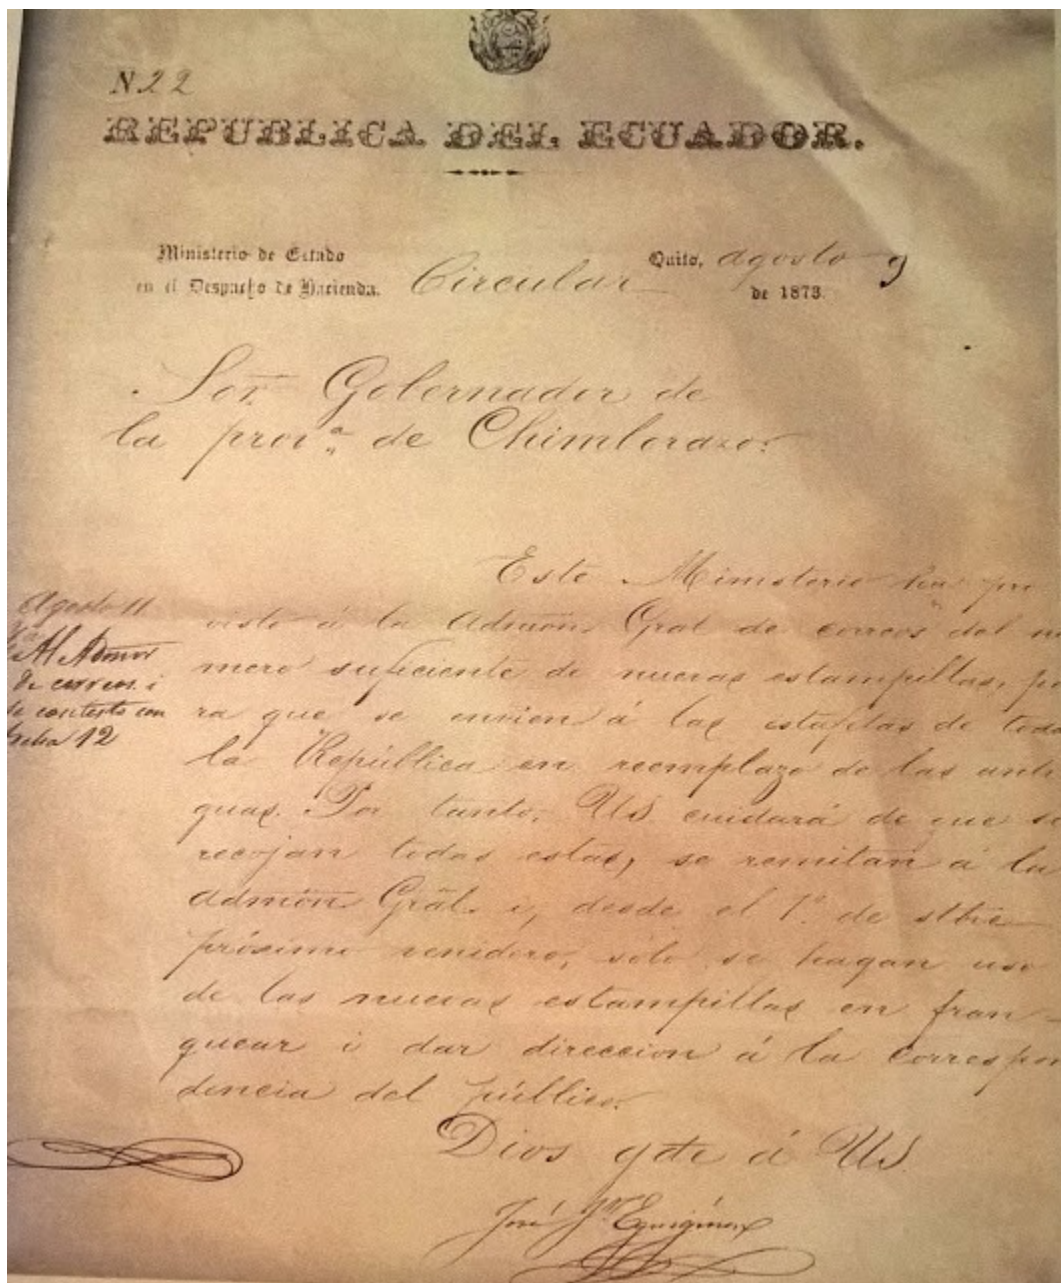 N 22
REPUBLICA DEL ECUADOR.
Ministerio de Estado
en el Despacho de Hacienda.
Circular
Quito, agosto 9
de 1873.
Sor. Gobernador de
la prov.ª de Chimborazo.
Este Ministerio ha pro
visto á la Admón. Gral de correos del nu
mero suficiente de nuevas estampillas, pa
ra que se envien á las estafetas de toda
la República en reemplazo de las anti
guas. Por tanto, US cuidará de que se
recojan todas estas, se remitan á la
Admón Gral. i, desde el 1.º de stbre
próximo venidero, sólo se hagan uso
de las nuevas estampillas en fran-
quear i dar direccion á la correspon
dencia del público.
Dios gde á US.
Agosto 11
Al Admor
de correos i
se contestó con
fecha 12
José